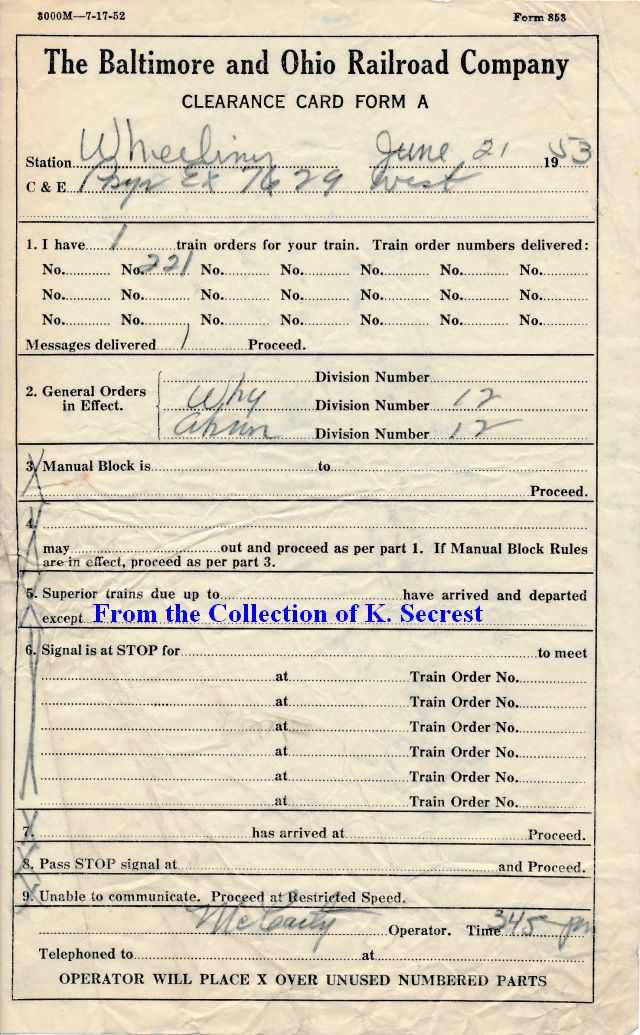 3000M—7-17-52 Form 853
The Baltimore and Ohio Railroad Company
CLEARANCE CARD FORM A
Station Wheeling June 21 1953
C & E Psgr Ex 7629 West
1. I have 1 train orders for your train. Train order numbers delivered:
No. No. 221 No. No. No. No. No.
No. No. No. No. No. No. No.
No. No. No. No. No. No. No.
Messages delivered 1 Proceed.
Division Number
2. General Orders in Effect. Whg Division Number 12
Division Number 12
3. Manual Block is to
Proceed.
4.
may out and proceed as per part 1. If Manual Block Rules
are in effect, proceed as per part 3.
5. Superior trains due up to have arrived and departed
except
From the Collection of K. Secrest
6. Signal is at STOP for to meet
at Train Order No.
at Train Order No.
at Train Order No.
at Train Order No.
at Train Order No.
at Train Order No.
7. has arrived at Proceed.
8. Pass STOP signal at and Proceed.
9. Unable to communicate. Proceed at Restricted Speed.
McCarty Operator. Time 345 pm
Telephoned to at
OPERATOR WILL PLACE X OVER UNUSED NUMBERED PARTS